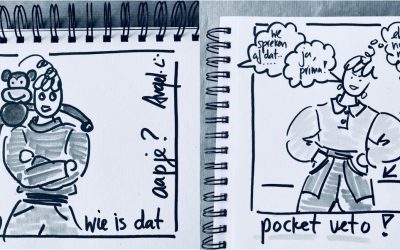 wie is dat
aapje?
we
spreken
af dat....
ja,
prima!
pocket veto!